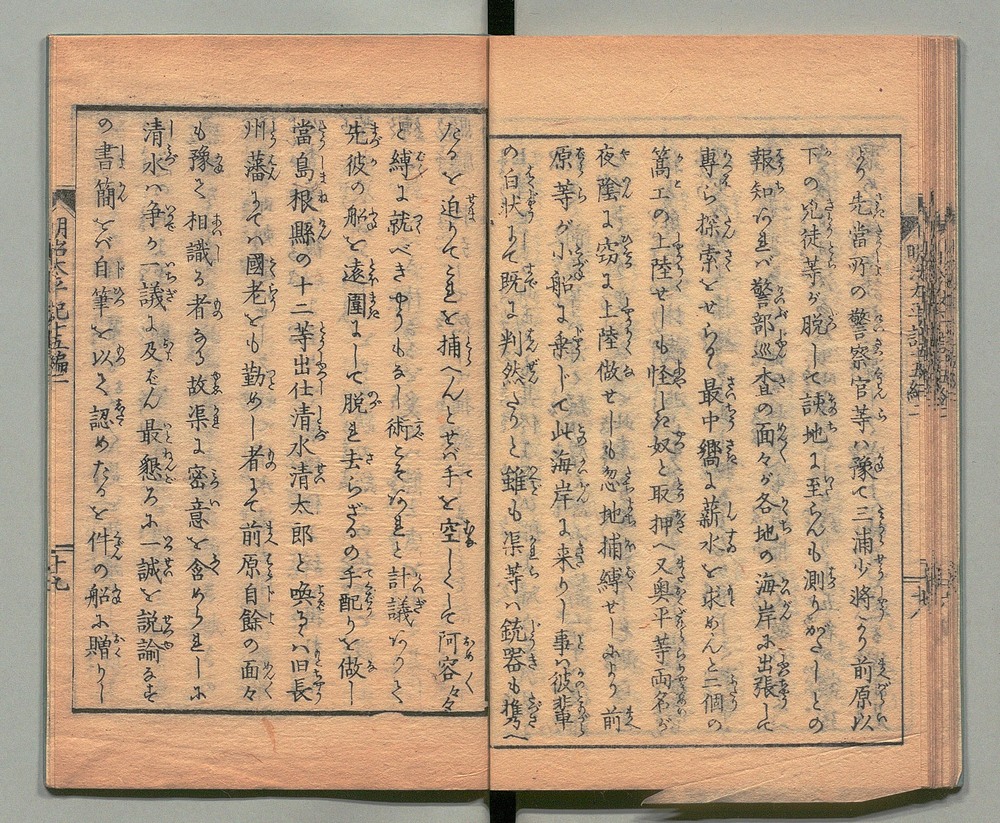 より先當所の警察官等ハ豫て三浦少将より前原以
下の兇徒等が脱して該地に至らんも測りがたしとの
報知あれバ警部巡査の面々が各地の海岸に出張して
専ら探索をせらるゝ最中嚮に薪水を求めんと二個の
篙工の上陸せしも怪しき奴と取押へ又奥平等両名が
夜陰に窃に上陸做せしも忽地捕縛せしにより前
原等が小船に乗じて此海岸に来りし事ハ彼輩
の白状にて既に判然たりと雖も渠等ハ銃器も携へ
たるを迫りてこれを捕へんとせバ手を空しくして阿容々々
と縛に就べきやうもなし術こそあれと計議りつゝ
先彼の船を遠圍にして脱れ去らざるの手配りを做し
當島根縣の十二等出仕清水清太郎と喚るゝハ旧長
州藩にてハ國老をも勤めし者にて前原自餘の面々
も豫て相識る者なる故渠に密意を含められしに
清水ハ争か一議に及ばん最懇ろに一誠を説諭なす
の書簡をバ自筆を以て認めたるを件の船に贈りし
明治太平記十五編一
二十九